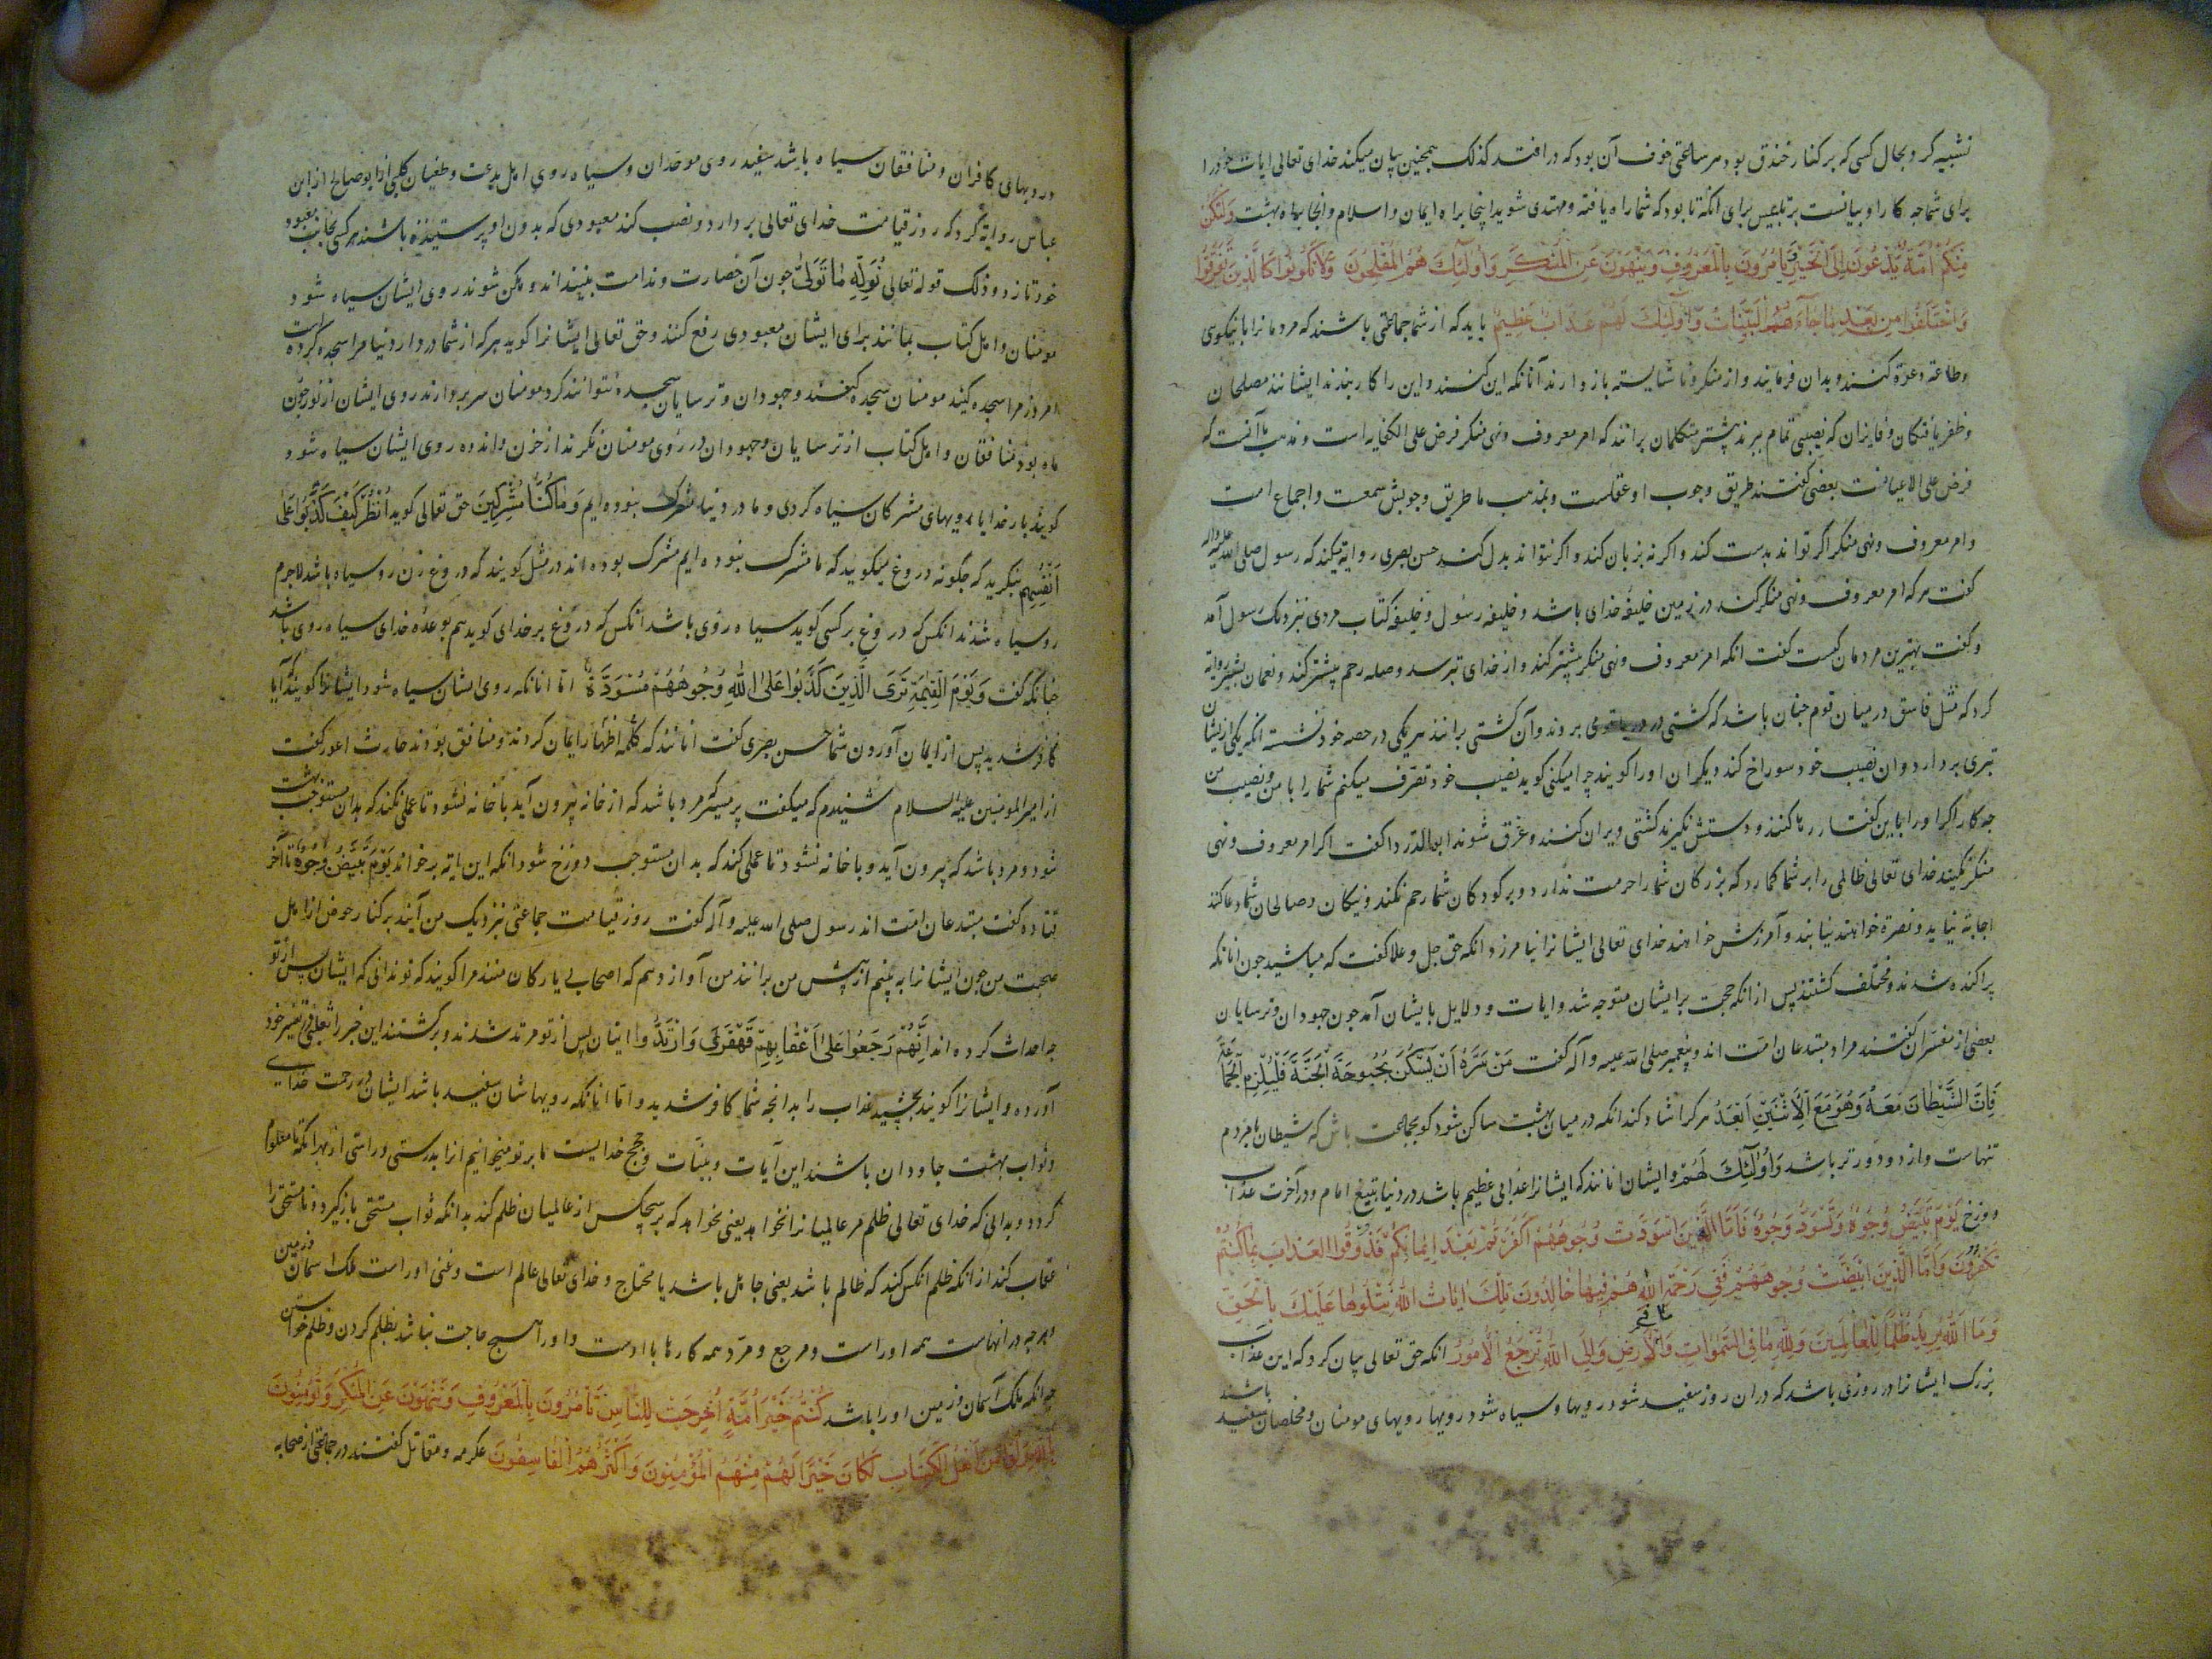 تشبیه کرد بحال کسی که بر کنار خندق بود هر ساعتی خوف آن بود که در افتد کذلک همچنین بیان میکند خدای تعالی ایات خود را
برای شما جه کار او بیانست بر تلبیس برای آنکه تا بود که شما راه یافته و مهتدی شوید اینجا براه ایمان و اسلام و آنجا براه بهشت وَلْتَكُنْ
مِنْكُمْ اُمَّةٌ يَدْعُونَ اِلَى الْخَيْرِ وَيَأْمُرُونَ بِالْمَعْرُوفِ وَيَنْهَوْنَ عَنِ الْمُنْكَرِ وَاُولٰئِكَ هُمُ الْمُفْلِحُونَ وَلَا تَكُونُوا كَالَّذِينَ تَفَرَّقُوا
وَاخْتَلَفُوا مِنْ بَعْدِ مَا جَاءَهُمُ الْبَيِّنَاتُ وَاُولٰئِكَ لَهُمْ عَذَابٌ عَظِيمٌ باید که از شما جماعتی باشند که مردمانرا با نیکوی
و طاعة دعوة کنند و بدان فرمایند و از منکر و ناشایسته باز دارند آنانکه این کنند و این را کار بندند ایشانند مصلحان
و ظفر یافتکان و فایزان که نصیبی تمام برند بیشتر متکلمان برانند که امر معروف و نهی منکر فرض علی الکفایه است و مذهب ما آنست که
فرض علی الاعیانست بعضی کفتند طریق وجوب او عقلست و بمذهب ما طریق وجوبش سمعست و اجماع امت
و امر معروف و نهی منکر اکر تواند بدست کند و اکر نه بزبان کند و اکر نتواند بدل کند حسن بصری روایة میکند که رسول صلی الله علیه واله
کفت هر که امر معروف و نهی منکر کند در زمین خلیفهٔ خدای باشد و خلیفه رسول و خلیفه کتاب مردی بنزدیک رسول آمد
و کفت بهترین مردمان کیست کفت انکه امر معروف و نهی منکر بیشتر کند و از خدای بترسد و صله رحم بیشتر کند و نعمان بشیر روایة
کرد که مثل فاسق در میان قوم جنان باشد که کشتی در دریا قومی بروند و آن کشتی برانند هر یکی در حصه خود نشسته انکه یکی از ایشان
تبری بردارد و ان نصیب خود سوراخ کند دیکران اورا کویند چرا میکنی کوید نصیب خود تصرف میکنم شما را با من و نصیب من
جه کار اکر او را بماین کفتار رها کنند و دستش نکیرند کشتی ویران کنند و غرق شوند ابوالدردا کفت اکر امر معروف و نهی
منکر نکیند خدای تعالی ظالمی را بر شما کمارد که بزرکان شما را حرمت ندارد و بر کودکان شما رحم نکند و نیکان و صالحان شما دعا کنند
اجابة نیاید و نصرة خواهند نیابند و آمرزش خواهند خدای تعالی ایشانرا نیامرزد انکه حق جل و علا کفت که مباشید جون انانکه
پراکنده شدند و مختلف کشتند پس از انکه حجت برایشان متوجه شد و ایات و دلایل بایشان آمد جون جهودان و ترسایان
بعضی از مفسران کفتند مراد مبتدعان امت اند و پیغمبر صلی الله علیه و آله کفت مَنْ سَرَّهُ اَنْ يَسْكُنَ بُحْبُوحَةَ الْجَنَّةِ فَلْيَلْزِمِ الْجَمَاعَةَ
فَاِنَّ الشَّيْطَانَ مَعَهُ وَهُوَ مَعَ الْاِثْنَيْنِ اَبْعَدُ هر کرا شاد کند انکه در میان بهشت ساکن شود کو بجماعت باش که شیطان با مردم
تنهاست و از دو دورتر باشد وَاُولٰئِكَ لَهُمْ و ایشان انانند که ایشانرا عذابی عظیم باشد در دنیا بتیغ امام و در آخرت عذاب
دوزخ يَوْمَ تَبْيَضُّ وُجُوهٌ وَتَسْوَدُّ وُجُوهٌ فَاَمَّا الَّذِينَ اسْوَدَّتْ وُجُوهُهُمْ اَكَفَرْتُمْ بَعْدَ اِيمَانِكُمْ فَذُوقُوا الْعَذَابَ بِمَا كُنْتُمْ
تَكْفُرُونَ وَاَمَّا الَّذِينَ ابْيَضَّتْ وُجُوهُهُمْ فَفِي رَحْمَةِ اللّٰهِ هُمْ فِيهَا خَالِدُونَ تِلْكَ اٰيَاتُ اللّٰهِ نَتْلُوهَا عَلَيْكَ بِالْحَقِّ
وَمَا اللّٰهُ يُرِيدُ ظُلْمًا لِلْعَالَمِينَ وَلِلّٰهِ مَا فِي السَّمٰوَاتِ وَمَا فِي الْاَرْضِ وَاِلَى اللّٰهِ تُرْجَعُ الْاُمُورُ انکه حق تعالی بیان کرد که این عذاب
بزرک ایشانرا در روزی باشد که دران روز سفید شود رویها و سیاه شود رویها رویهای مومنان و مخلصان سفید باشند
و رویهای کافران و منافقان سیاه باشد سفید روی موحدان و سیاه روی اهل بدعت و طغیان کلبی از ابو صالح از ابن
عباس روایة کرد که روز قیامت خدای تعالی بردارد و نصب کند معبودی که بدون او پرستیده باشند هر کسی بجانب معبود
خود تازد و ذلک قوله تعالی نُوَلِّهِ مَا تَوَلَّىٰ جون آن خسارت و ندامت بینند اندوهکن شوند روی ایشان سیاه شود
مومنان و اهل کتاب بمانند برای ایشان معبودی رفع کنند و حق تعالی ایشانرا کوید هر که از شما در دار دنیا مرا سجده کرده است
امروز مرا سجده کنید مومنان سجده کنند و جهودان و ترسایان سجده نتوانند کرد مومنان سر بردارند روی ایشان از نور جون
ماه بود منافقان و اهل کتاب از ترسایان و جهودان در روی مومنان نکرند از حزن و اندوه روی ایشان سیاه شود
کویند بار خدایا رویهای مشرکان سیاه کردی و ما در دنیا مشرک نبوده ایم وَمَا كُنَّا مُشْرِكِينَ حق تعالی کوید اُنْظُرْ كَيْفَ كَذَبُوا عَلَىٰ
اَنْفُسِهِمْ بنکرید که جکونه دروغ میکویند که ما مشرک نبوده ایم مشرک بوده اند در مثل کویند که دروغ زن رو سیاه باشد لاجرم
رو سیاه شدند انکس که دروغ بر کسی کوید سیاه روی باشد انکس که دروغ بر خدای کوید هم بوعدهٔ خدای سیاه روی باشد
جنانکه کفت وَيَوْمَ الْقِيٰمَةِ تَرَى الَّذِينَ كَذَبُوا عَلَى اللّٰهِ وُجُوهُهُمْ مُسْوَدَّةٌ اما انانکه روی ایشان سیاه شود ایشانرا کویند آیا
کافر شدید پس از ایمان آوردن شما حسن بصری کفت انانند که کلمه اظهار ایمان کردند و منافق بودند حارث اعور کفت
از امیرالمومنین علیه السلام شنیدم که میکفت بر منبر که مرد باشد که از خانه بیرون آید با خانه نشود تا عملی نکند که بدان مستوجب بهشت
شود و مرد باشد که بیرون آید و با خانه نشود تا عملی کند که بدان مستوجب دوزخ شود انکه این ایة برخواند يَوْمَ تَبْيَضُّ وُجُوهٌ تا آخر
قتاده کفت مبتدعان امت اند رسول صلی الله علیه و آله کفت روز قیامت جماعتی نزدیک من آیند بر کنار حوض از اهل
صحبت من جون ایشانرا به بینم از پیش من برانند من آواز دهم که اصحابی یارکان منند مرا کویند که تو ندانی که ایشان پس از تو
جه احداث کرده اند اِنَّهُمْ رَجَعُوا عَلَىٰ اَعْقَابِهِمْ قَهْقَرَىٰ وَارْتَدُّوا اینان پس از تو مرتد شدند و برکشتند این خبر را ثعلبی در تفسیر خود
آورده و ایشانرا کویند بچشید عذاب را بدانجه شما کافر شدید و اما انانکه رویهاشان سفید باشد ایشان در رحمت خدای
و ثواب بهشت جاودان باشند این آیات و بینات و حجج خدایست ما بر تو میخوانیم انرا بدرستی و راستی از بهر انکه تا معلوم
کردد و بدانی که خدای تعالی ظلم مر عالمیانرا نخواهد یعنی نخواهد که بر هیچکس از عالمیان ظلم کند بدانکه ثواب مستحق باز کیرد و نامستحق را
عقاب کند از انکه ظلم انکس کند که ظالم باشد یعنی جاهل باشد یا محتاج و خدای تعالی عالم است و غنی اوراست ملک اسمان و زمین
و هر جه در انهاست همه اوراست و مرجع و مرد همه کارها با اوست و اورا هیچ حاجت نباشد بظلم کردن و ظلم خواستن
جه انکه ملک آسمان و زمین اورا باشد كُنْتُمْ خَيْرَ اُمَّةٍ اُخْرِجَتْ لِلنَّاسِ تَأْمُرُونَ بِالْمَعْرُوفِ وَتَنْهَوْنَ عَنِ الْمُنْكَرِ وَتُؤْمِنُونَ
بِاللّٰهِ وَلَوْ اٰمَنَ اَهْلُ الْكِتَابِ لَكَانَ خَيْرًا لَهُمْ مِنْهُمُ الْمُؤْمِنُونَ وَاَكْثَرُهُمُ الْفَاسِقُونَ عکرمه و مقاتل کفتند در جماعتی از صحابه